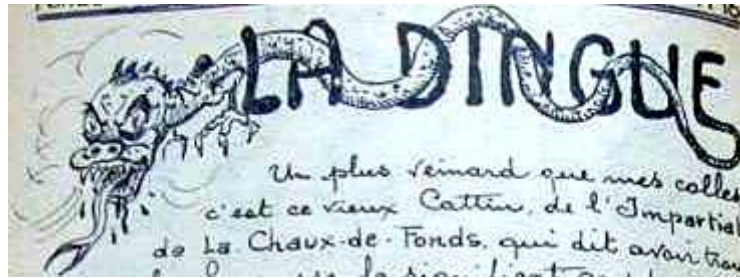 LA DINGUE
Un plus veinard que mes colles
c'est ce vieux Cattin, de l'Impartial
de La Chaux-de-Fonds, qui dit avoir